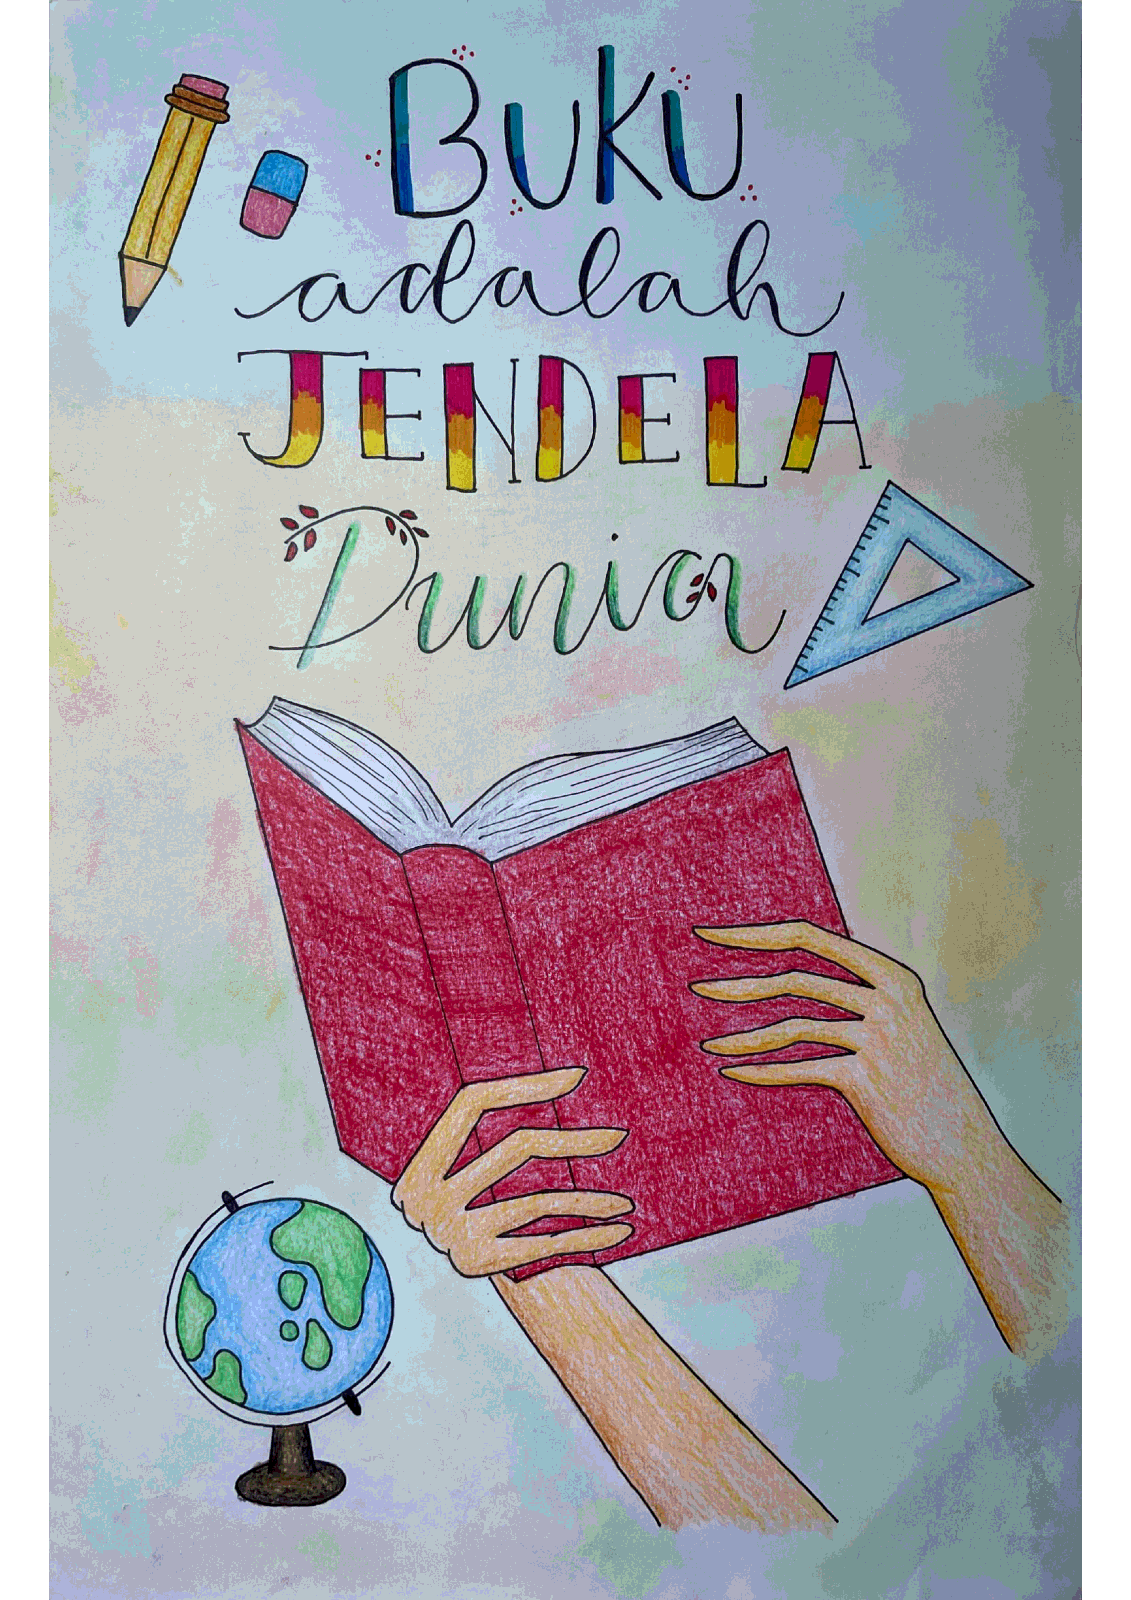 BUKU
adalah
JENDELA
Dunia